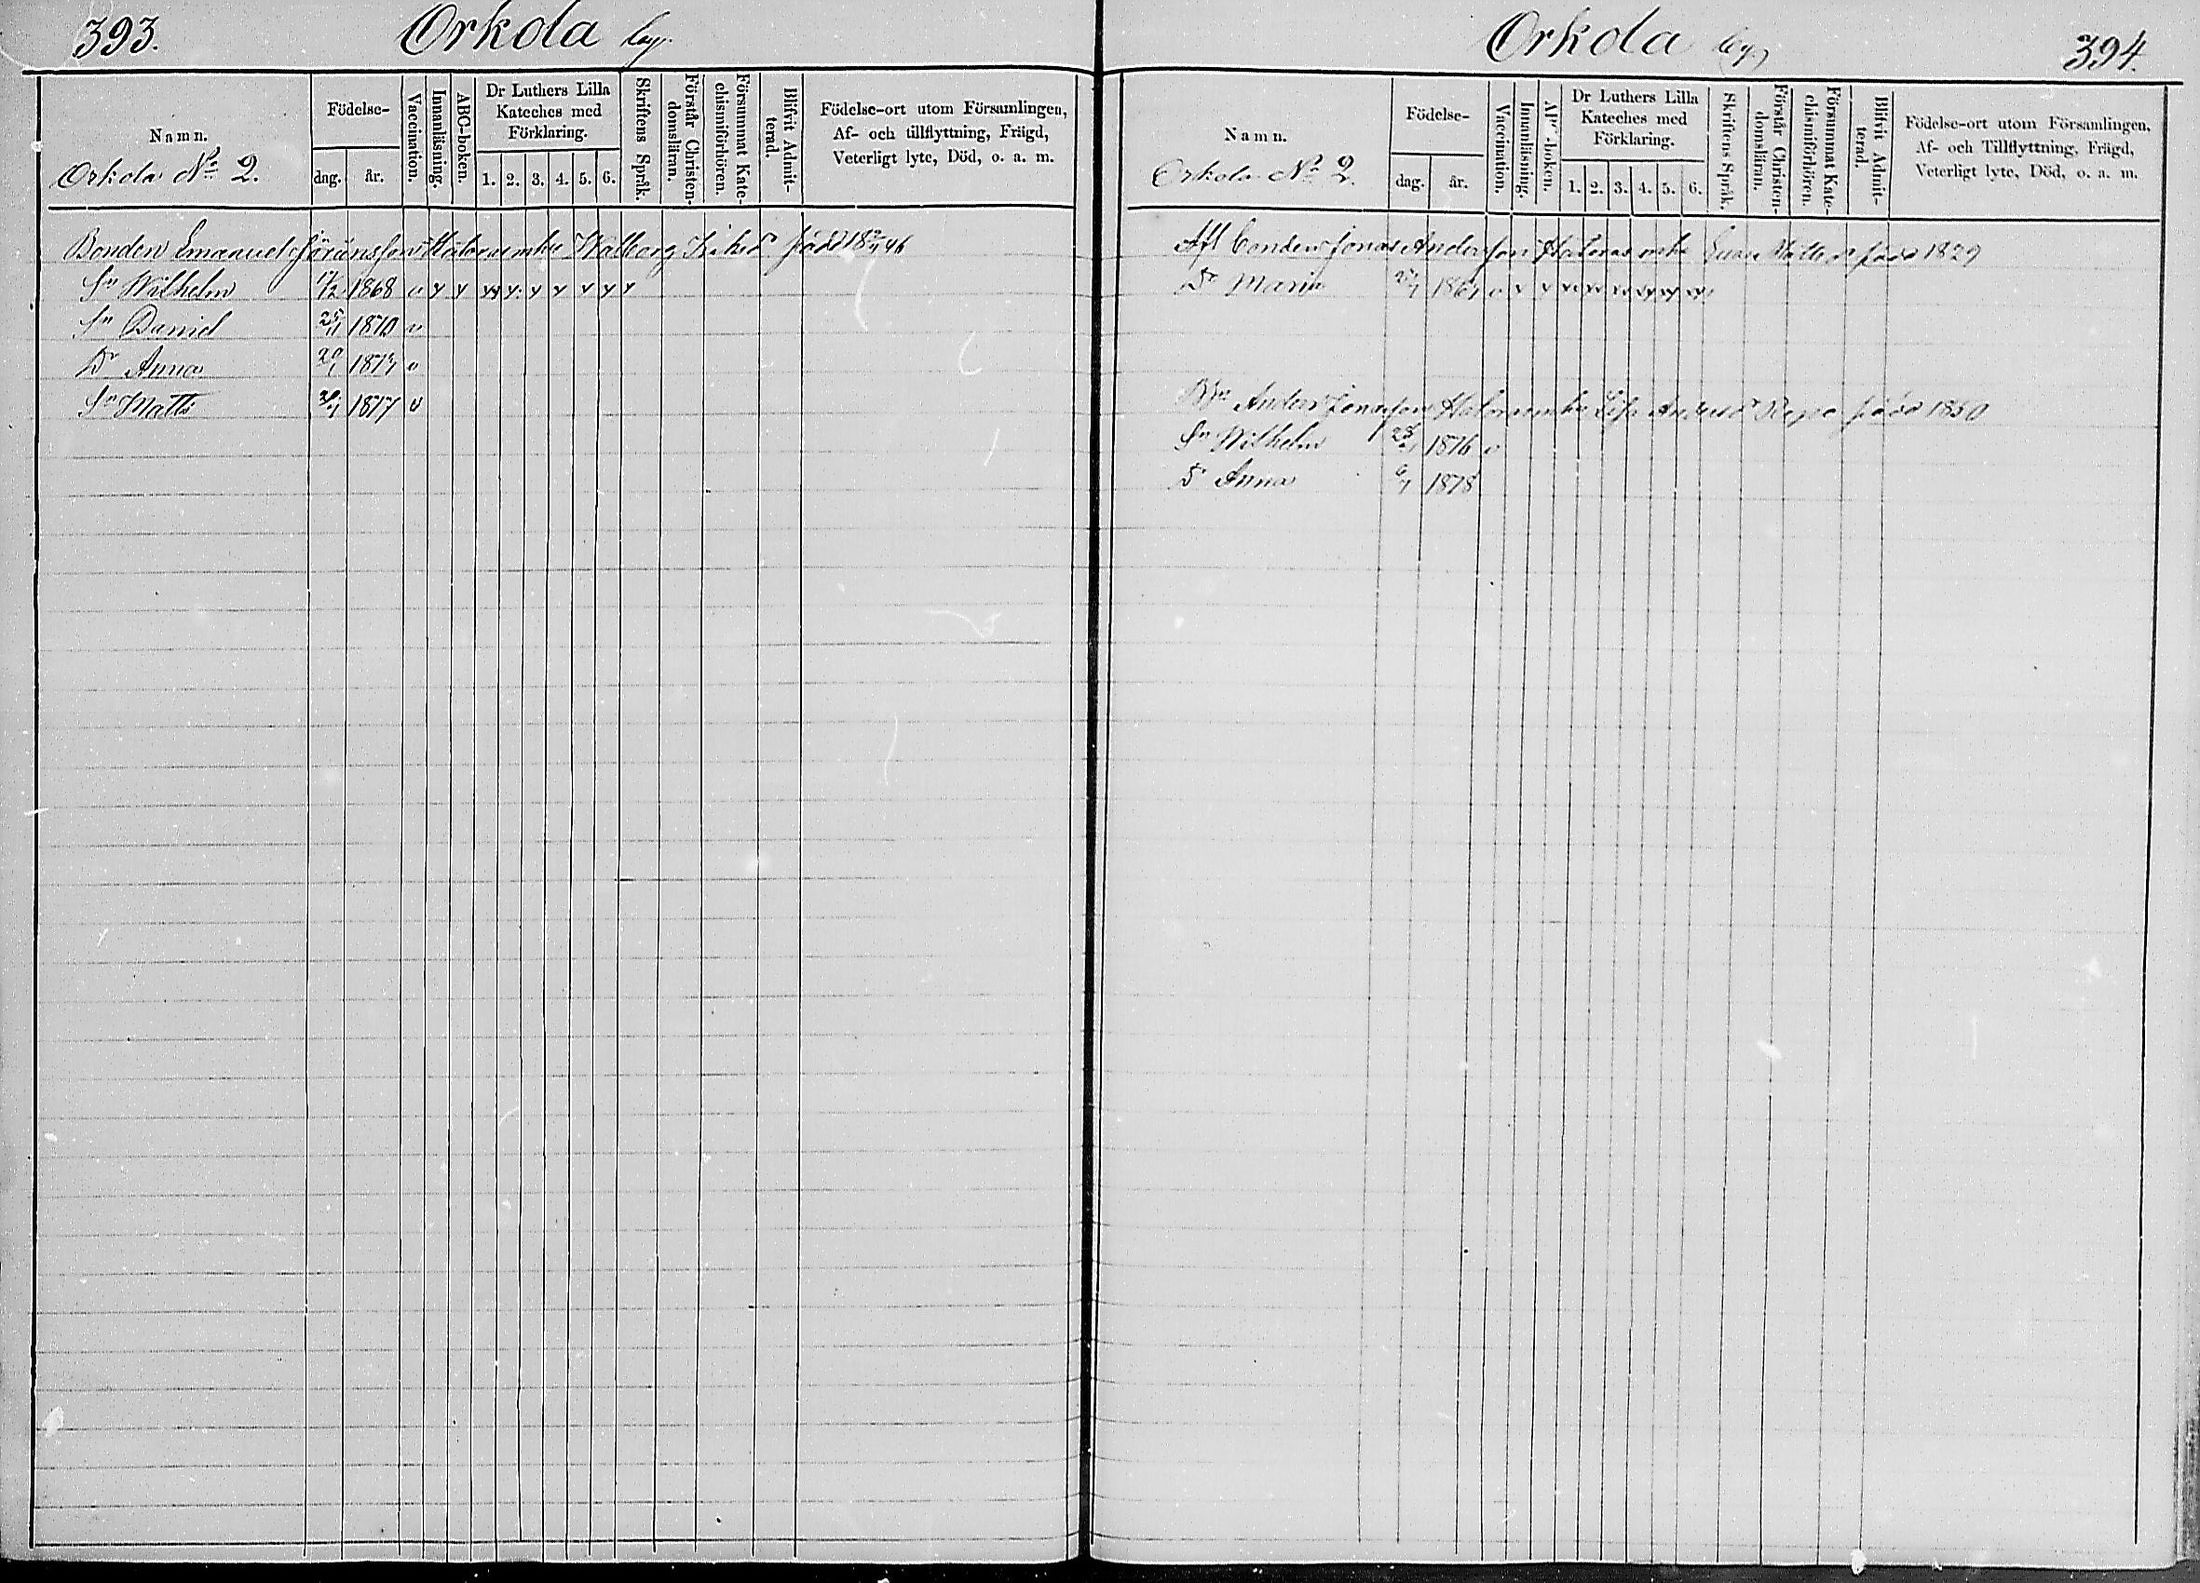 393.
Orkola by.
Namn.
Orkola No 2.
Födelse-
dag. år.
Vaccination.
Innanläsning.
ABC-boken.
Dr Luthers Lilla
Kateches med
Förklaring.
1. 2. 3. 4. 5. 6.
Skriftens Språk.
Förstår Christen-
domsläran.
Försummat Kate-
chismiförhören.
Blifvit Admit-
terad.
Födelse-ort utom Församlingen,
Af- och tillflyttning, Frägd,
Veterligt lyte, Död, o. a. m.
Bonden Emanuel Göransson Walborg född
Sn Wilhelm 17/2 1868 v y y y y y y y y y
Sn Daniel 25/11 1870 v
Dr Anna v
Sn Matts 1877 v
Orkola by.
394.
Namn.
Orkola No 2.
Födelse-
dag. år.
Vaccination.
Innanläsning.
ABC-boken.
Dr Luthers Lilla
Kateches med
Förklaring.
1. 2. 3. 4. 5. 6.
Skriftens Språk.
Förstår Christen-
domsläran.
Försummat Kate-
chismiförhören.
Blifvit Admit-
terad.
Födelse-ort utom Församlingen,
Af- och Tillflyttning, Frägd,
Veterligt lyte, Död, o. a. m.
Afl bonden Jonas Andersson född 1829
Dr Maria
Anders Jonasson Lisa född 1850
Sn Wilhelm 1876 v
Dr Anna 1878